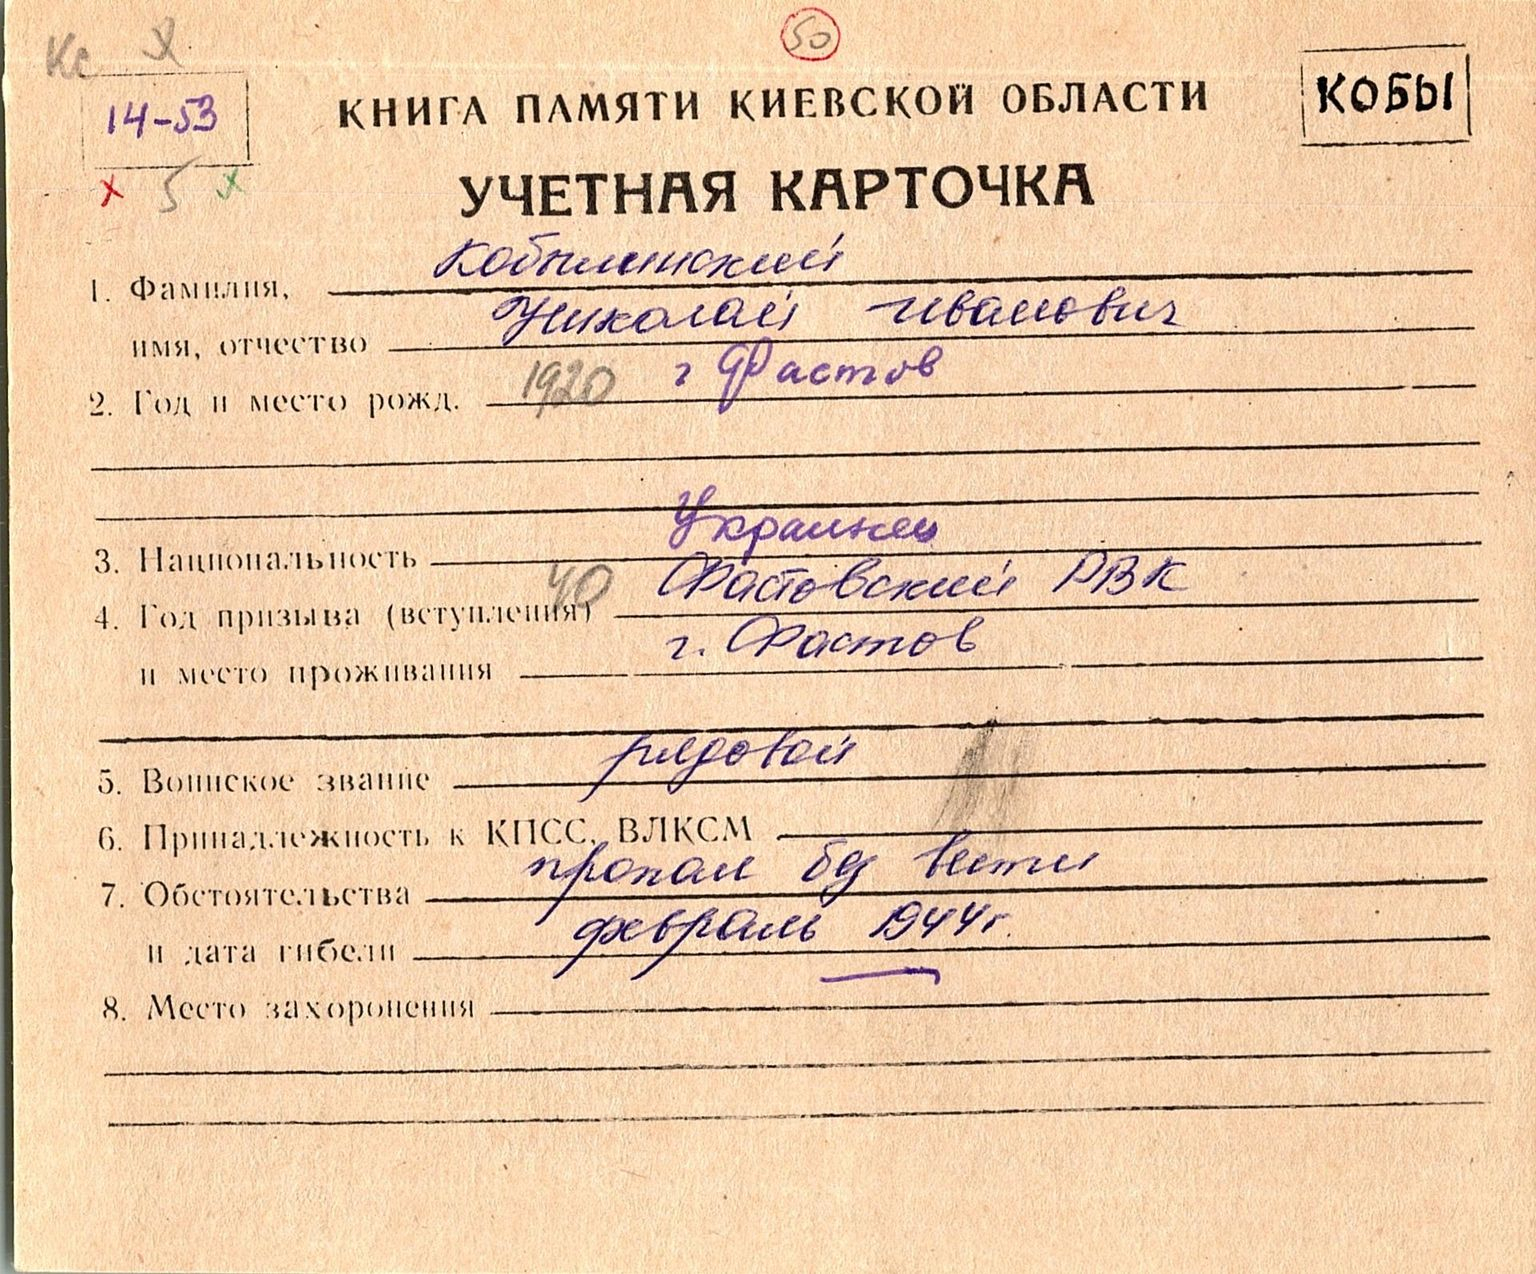 Кс
50
14-53
КНИГА ПАМЯТИ КИЕВСКОЙ ОБЛАСТИ
КОБЫ
х 5 х
УЧЕТНАЯ КАРТОЧКА
1. Фамилия, Кобылинский
имя, отчество Николай Иванович
2. Год и место рожд. 1920 г Фастов
3. Национальность Украинец
4. Год призыва (вступления) 40 Фастовский РВК
и место проживания г. Фастов
5. Воинское звание рядовой
6. Принадлежность к КПСС, ВЛКСМ
7. Обстоятельства пропал без вести
и дата гибели февраль 1944г.
8. Место захоронения